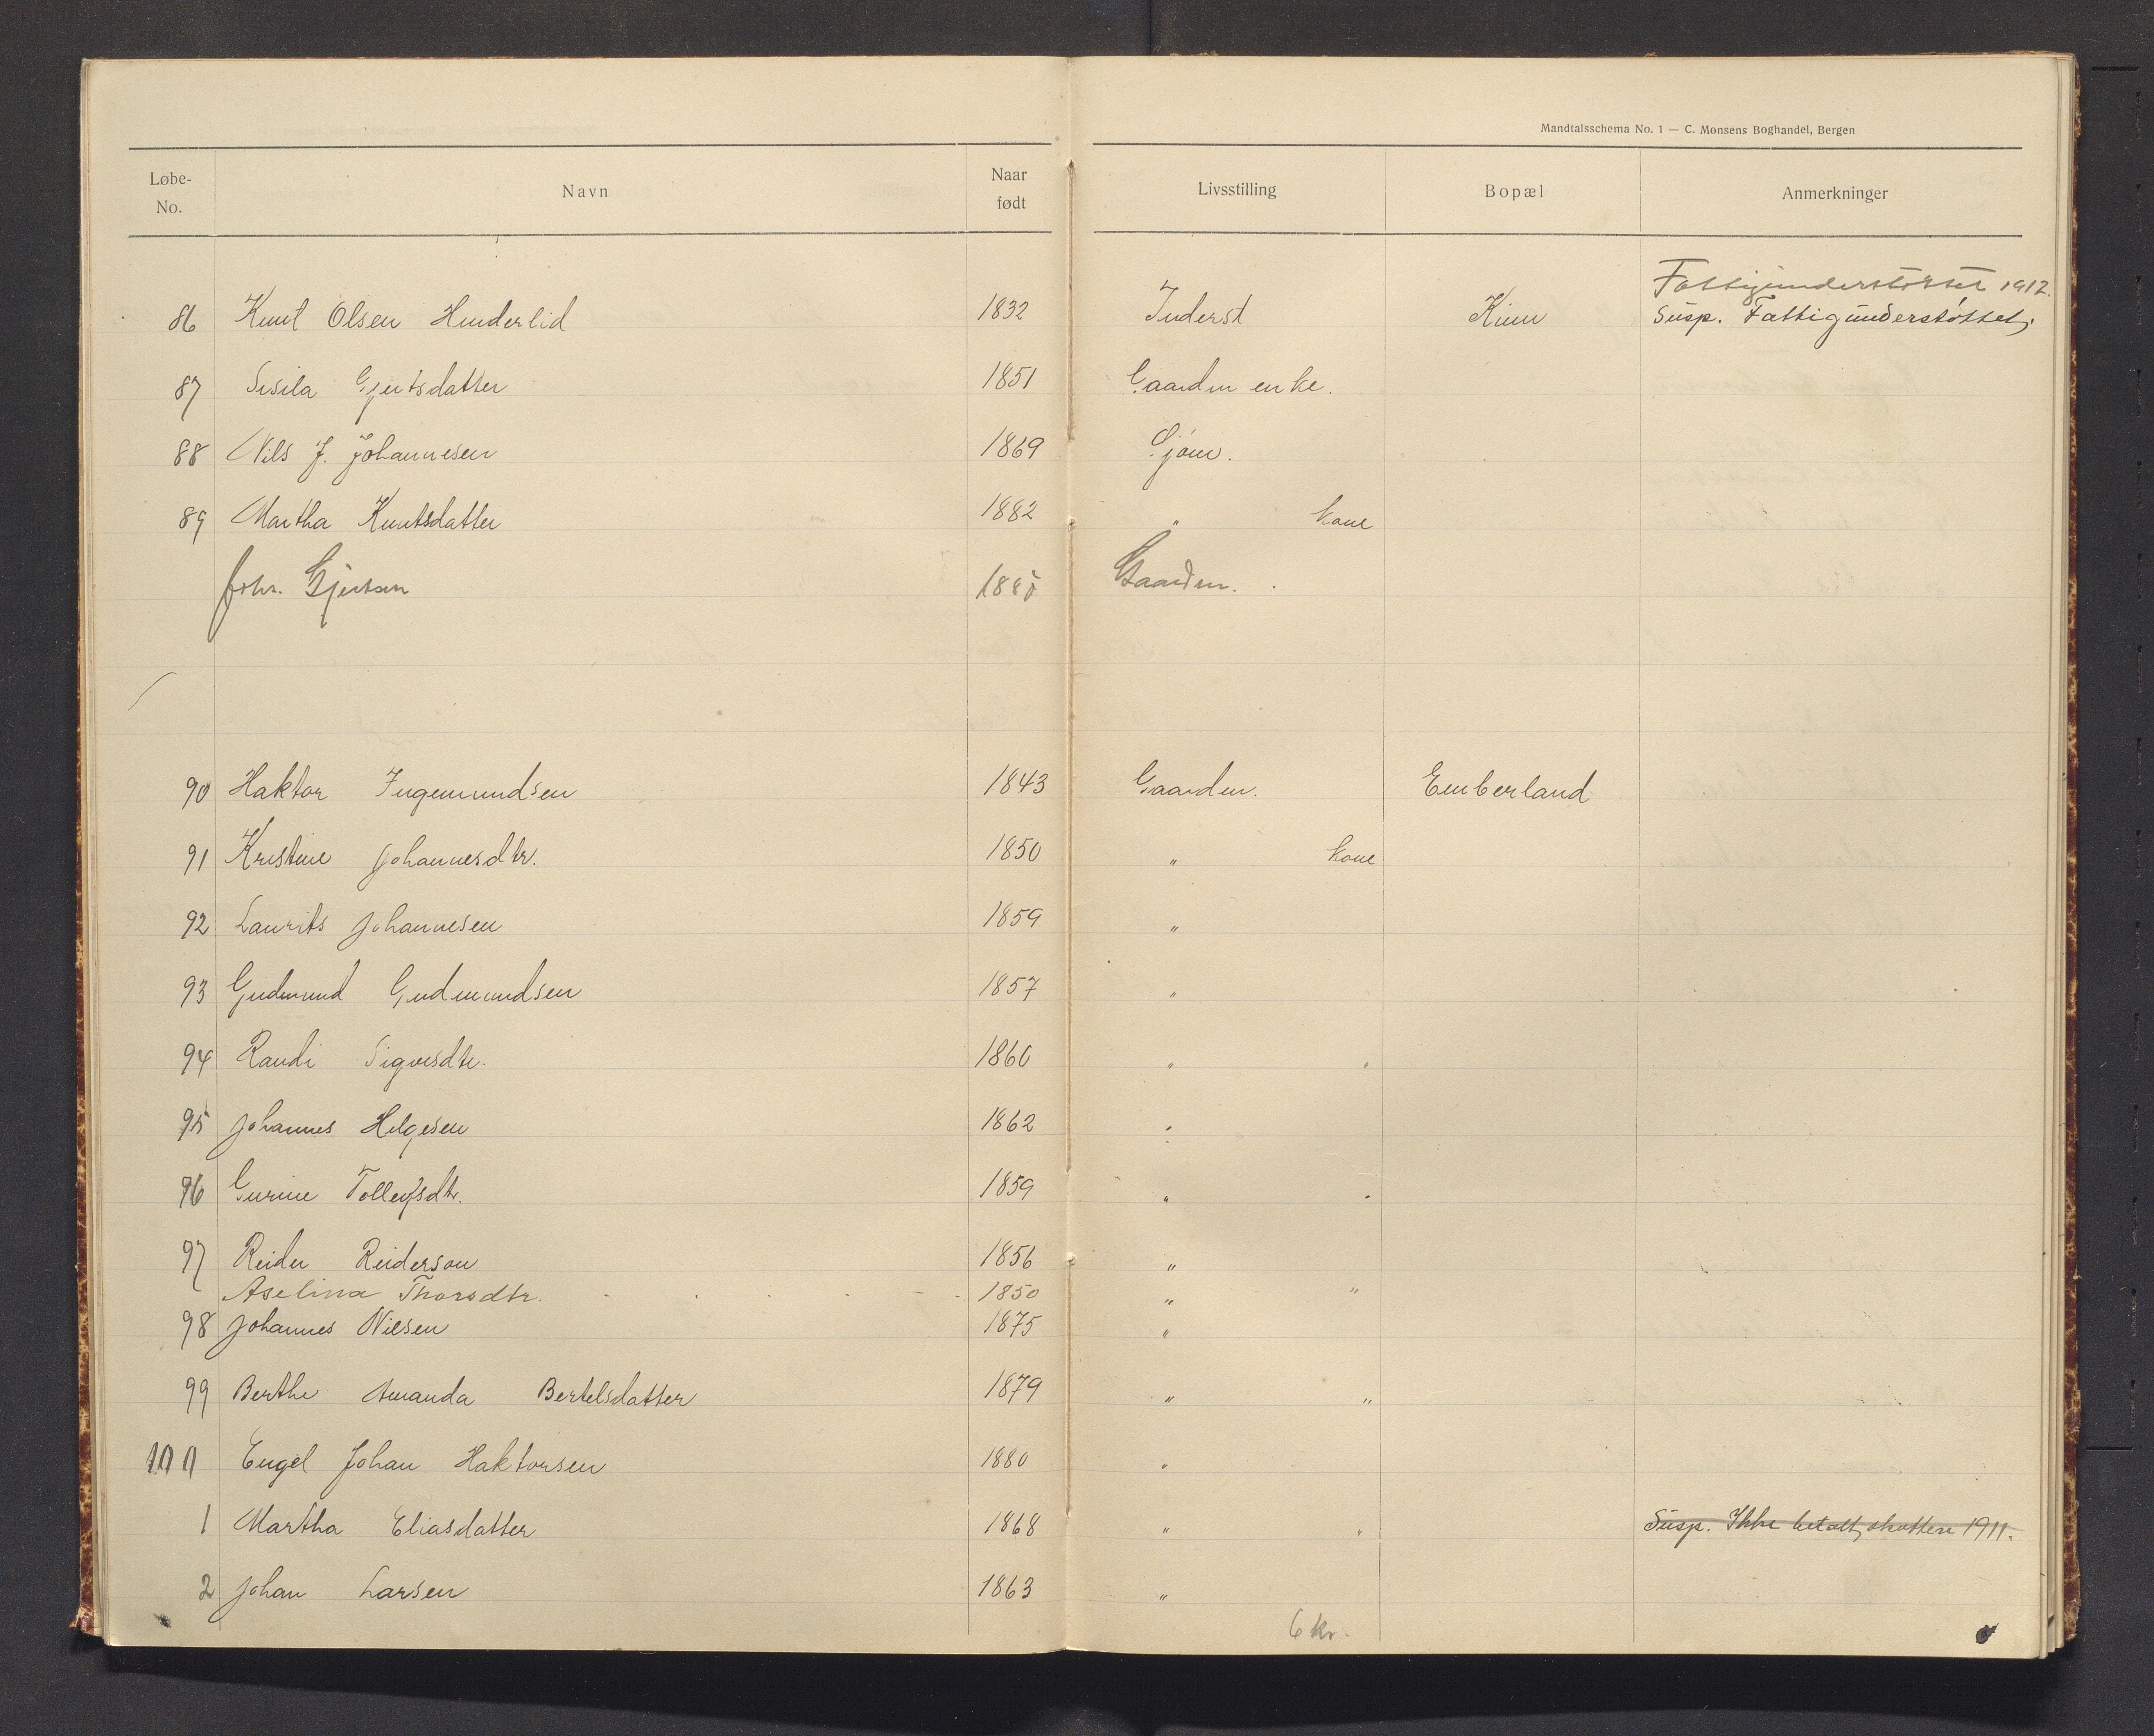 Mandtalsschema No. 1 — C. Monsens Boghandel, Bergen
Løbe-No. Navn Naar født Livsstilling Bopæl Anmerkninger
Fattigunderstøttet 1912.
86 Knut Olsen Hinderlid 1832 Inderst Kinn Susp. Fattigunderstøttet,
87 Sisila Gjertsdatter 1851 Gaardm enke.
88 Nils J. Johannesen 1869 Gjøm.
89 Martha Knutsdatter 1882 " kone
Johs. Gjertsen 1885 Gaardm.
90 Haktor Ingemundsen 1843 Gaardm. Emberland
91 Kristine Johannesdtr. 1850 " kone
92 Laurits Johannesen 1859 "
93 Gudmund Gudmundsen 1857 "
94 Randi Sigvesdtr. 1860 " "
95 Johannes Helgesen 1862 "
96 Gurine Tollefsdtr. 1859 " "
97 Reider Reiderson 1856 "
Aselina Thorsdtr. 1850 " "
98 Johannes Nilsen 1875 "
99 Berthe Amanda Bertelsdatter 1879 " "
100 Engel Johan Haktorsen 1880 "
1 Martha Eliasdatter 1868 " " Susp. Ikke betalt skatten 1911.
2 Johan Larsen 1863 "
6 kr.